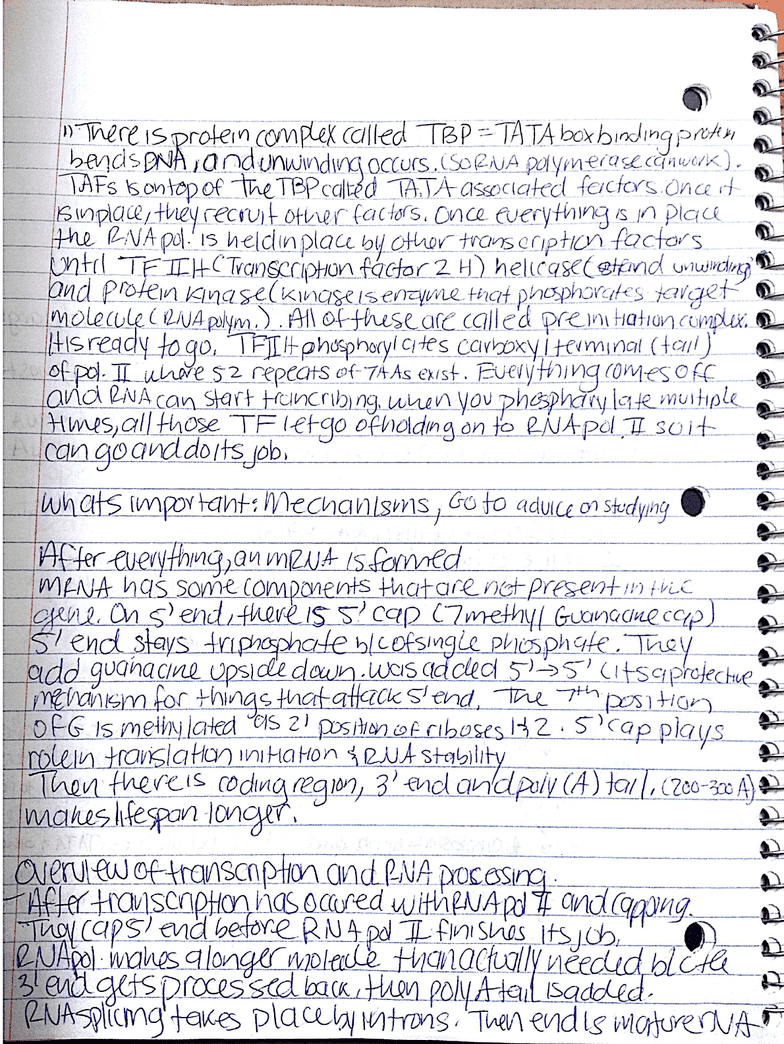 1) There is protein complex called TBP = TATA box binding protein
bends DNA, and unwinding occurs. (so RNA polymerase can work).
TAFs is on top of the TBP called TATA associated factors. Once it
is in place, they recruit other factors. Once everything is in place
the RNA pol. is held in place by other transcription factors
until TFIIH (Transcription factor 2 H) helicase (strand unwinding)
and protein kinase (kinase is enzyme that phosphorates target
molecule (RNA polym.). All of these are called preinitiation complex.
It is ready to go. TFIIH phosphorylates carboxyl terminal (tail)
of pol. II where 52 repeats of 7AAs exist. Everything comes off
and RNA can start trancribing. when you phosphorylate multiple
times, all those TF let go of holding on to RNA pol. II so it
can go and do its job.
whats important: Mechanisms, Go to advice on studying
After everything, an mRNA is formed
mRNA has some components that are not present in the
gene. On 5' end, there is 5' cap (7 methyl Guanacine cap)
5' end stays triphosphate b/c of single phosphate. They
add guanacine upside down. was added 5'→5' (its a protective
mechanism for things that attack 5' end. The 7th position
of G is methylated as 2' position of riboses 1 & 2. 5' cap plays
role in translation initiation & RNA stability
Then there is coding region, 3' end and poly (A) tail. (200-300 A)
makes lifespan longer.
Overview of transcription and RNA processing.
- After transcription has occured with RNA pol II and capping.
They cap 5' end before RNA pol II finishes its job.
RNA pol. makes a longer molecule than actually needed b/c the
3' end gets processed back, then poly A tail is added.
RNA splicing takes place by introns. Then end is mature RNA